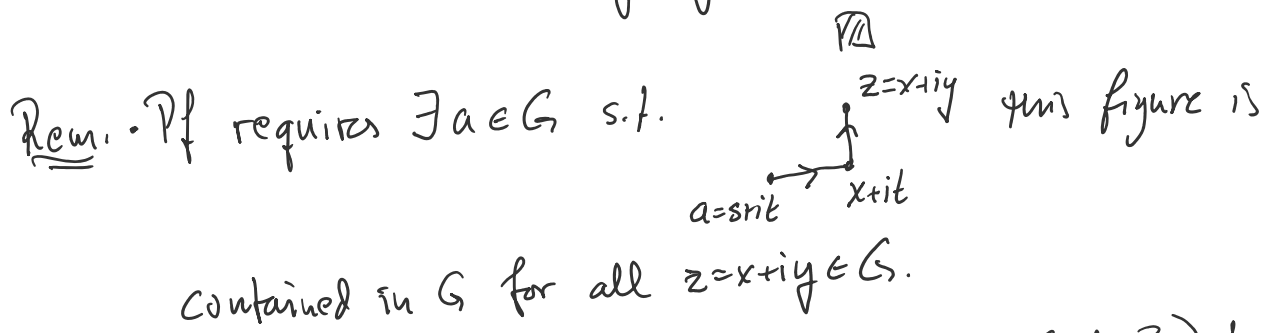 z=x+iy
Rem. · Pf requires ∃ a ∈ G s.t. this figure is
a=s+it x+it
contained in G for all z=x+iy ∈ G.